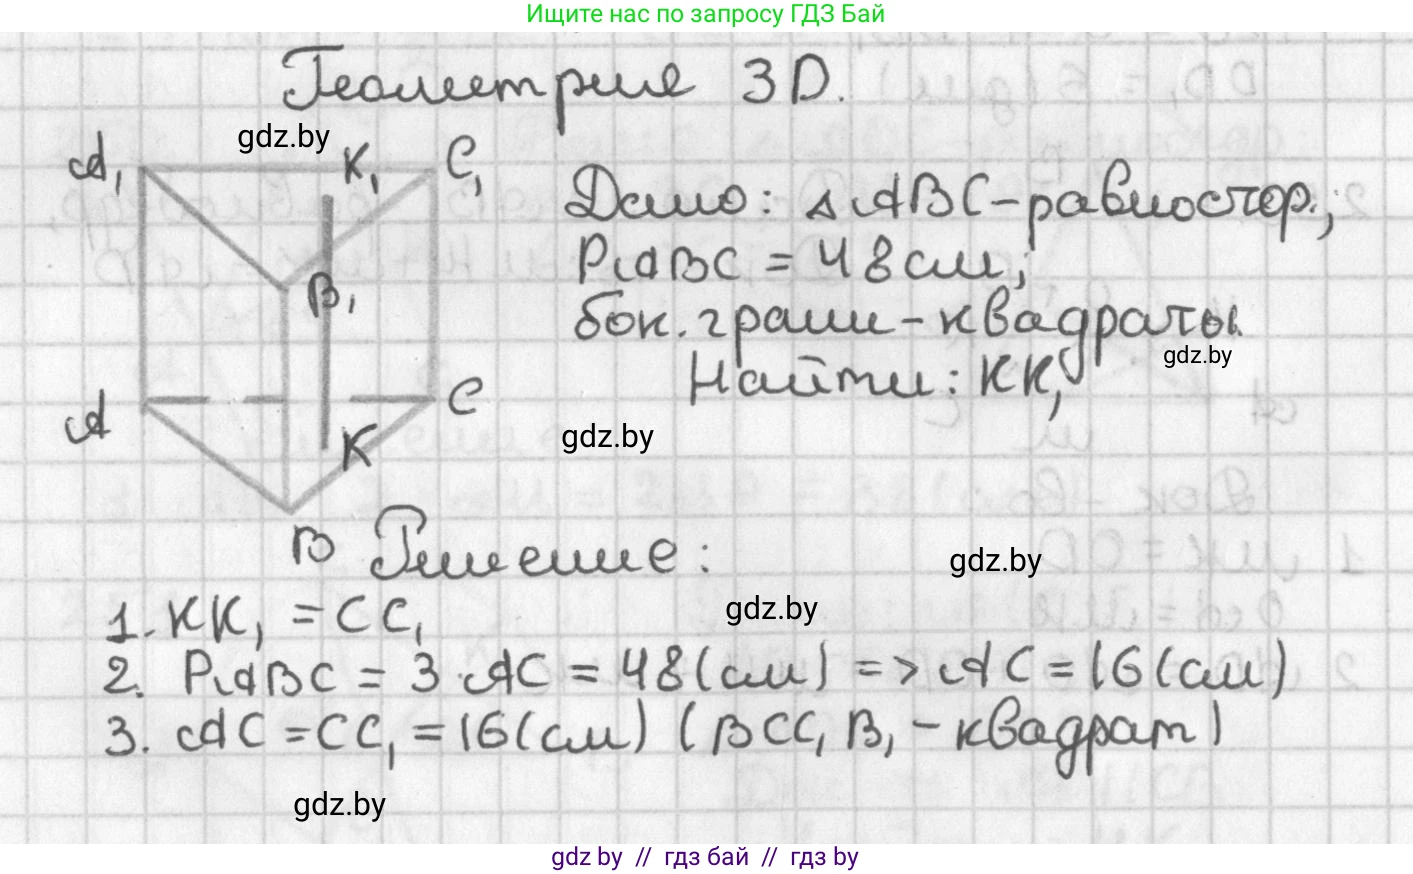 Ищите нас по запросу ГДЗ Бай
Геометрия 3D.
gdz.by
A₁ K₁ C₁
Дано: △ABC-равностор.;
PABC = 48см;
B₁
бок. грани-квадраты.
gdz.by
Найти: KK₁
A C
gdz.by
K
B
Решение:
gdz.by
1. KK₁ = CC₁
gdz.by
2. PABC = 3·AC = 48(см) => AC = 16(см)
3. AC = CC₁ = 16(см) (BCC₁B₁ - квадрат)
gdz.by
gdz by // гдз бай // гдз by